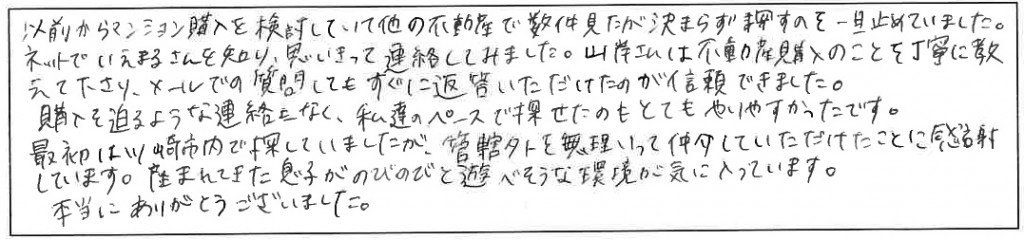 以前からマンション購入を検討していて他の不動産で数件見たが決まらず探すのを一旦止めていました。
ネットでいえまるさんを知り、思いきって連絡してみました。山岸さんは不動産購入のことを丁寧に教
えて下さり、メールでの質問してもすぐに返答いただけたのが信頼できました。
購入を迫るような連絡もなく、私達のペースで探せたのもとてもやりやすかったです。
最初は川崎市内で探していましたが、管轄外を無理いって仲介していただけたことに感謝
しています。産まれてきた息子がのびのびと遊べそうな環境が気に入っています。
本当にありがとうございました。